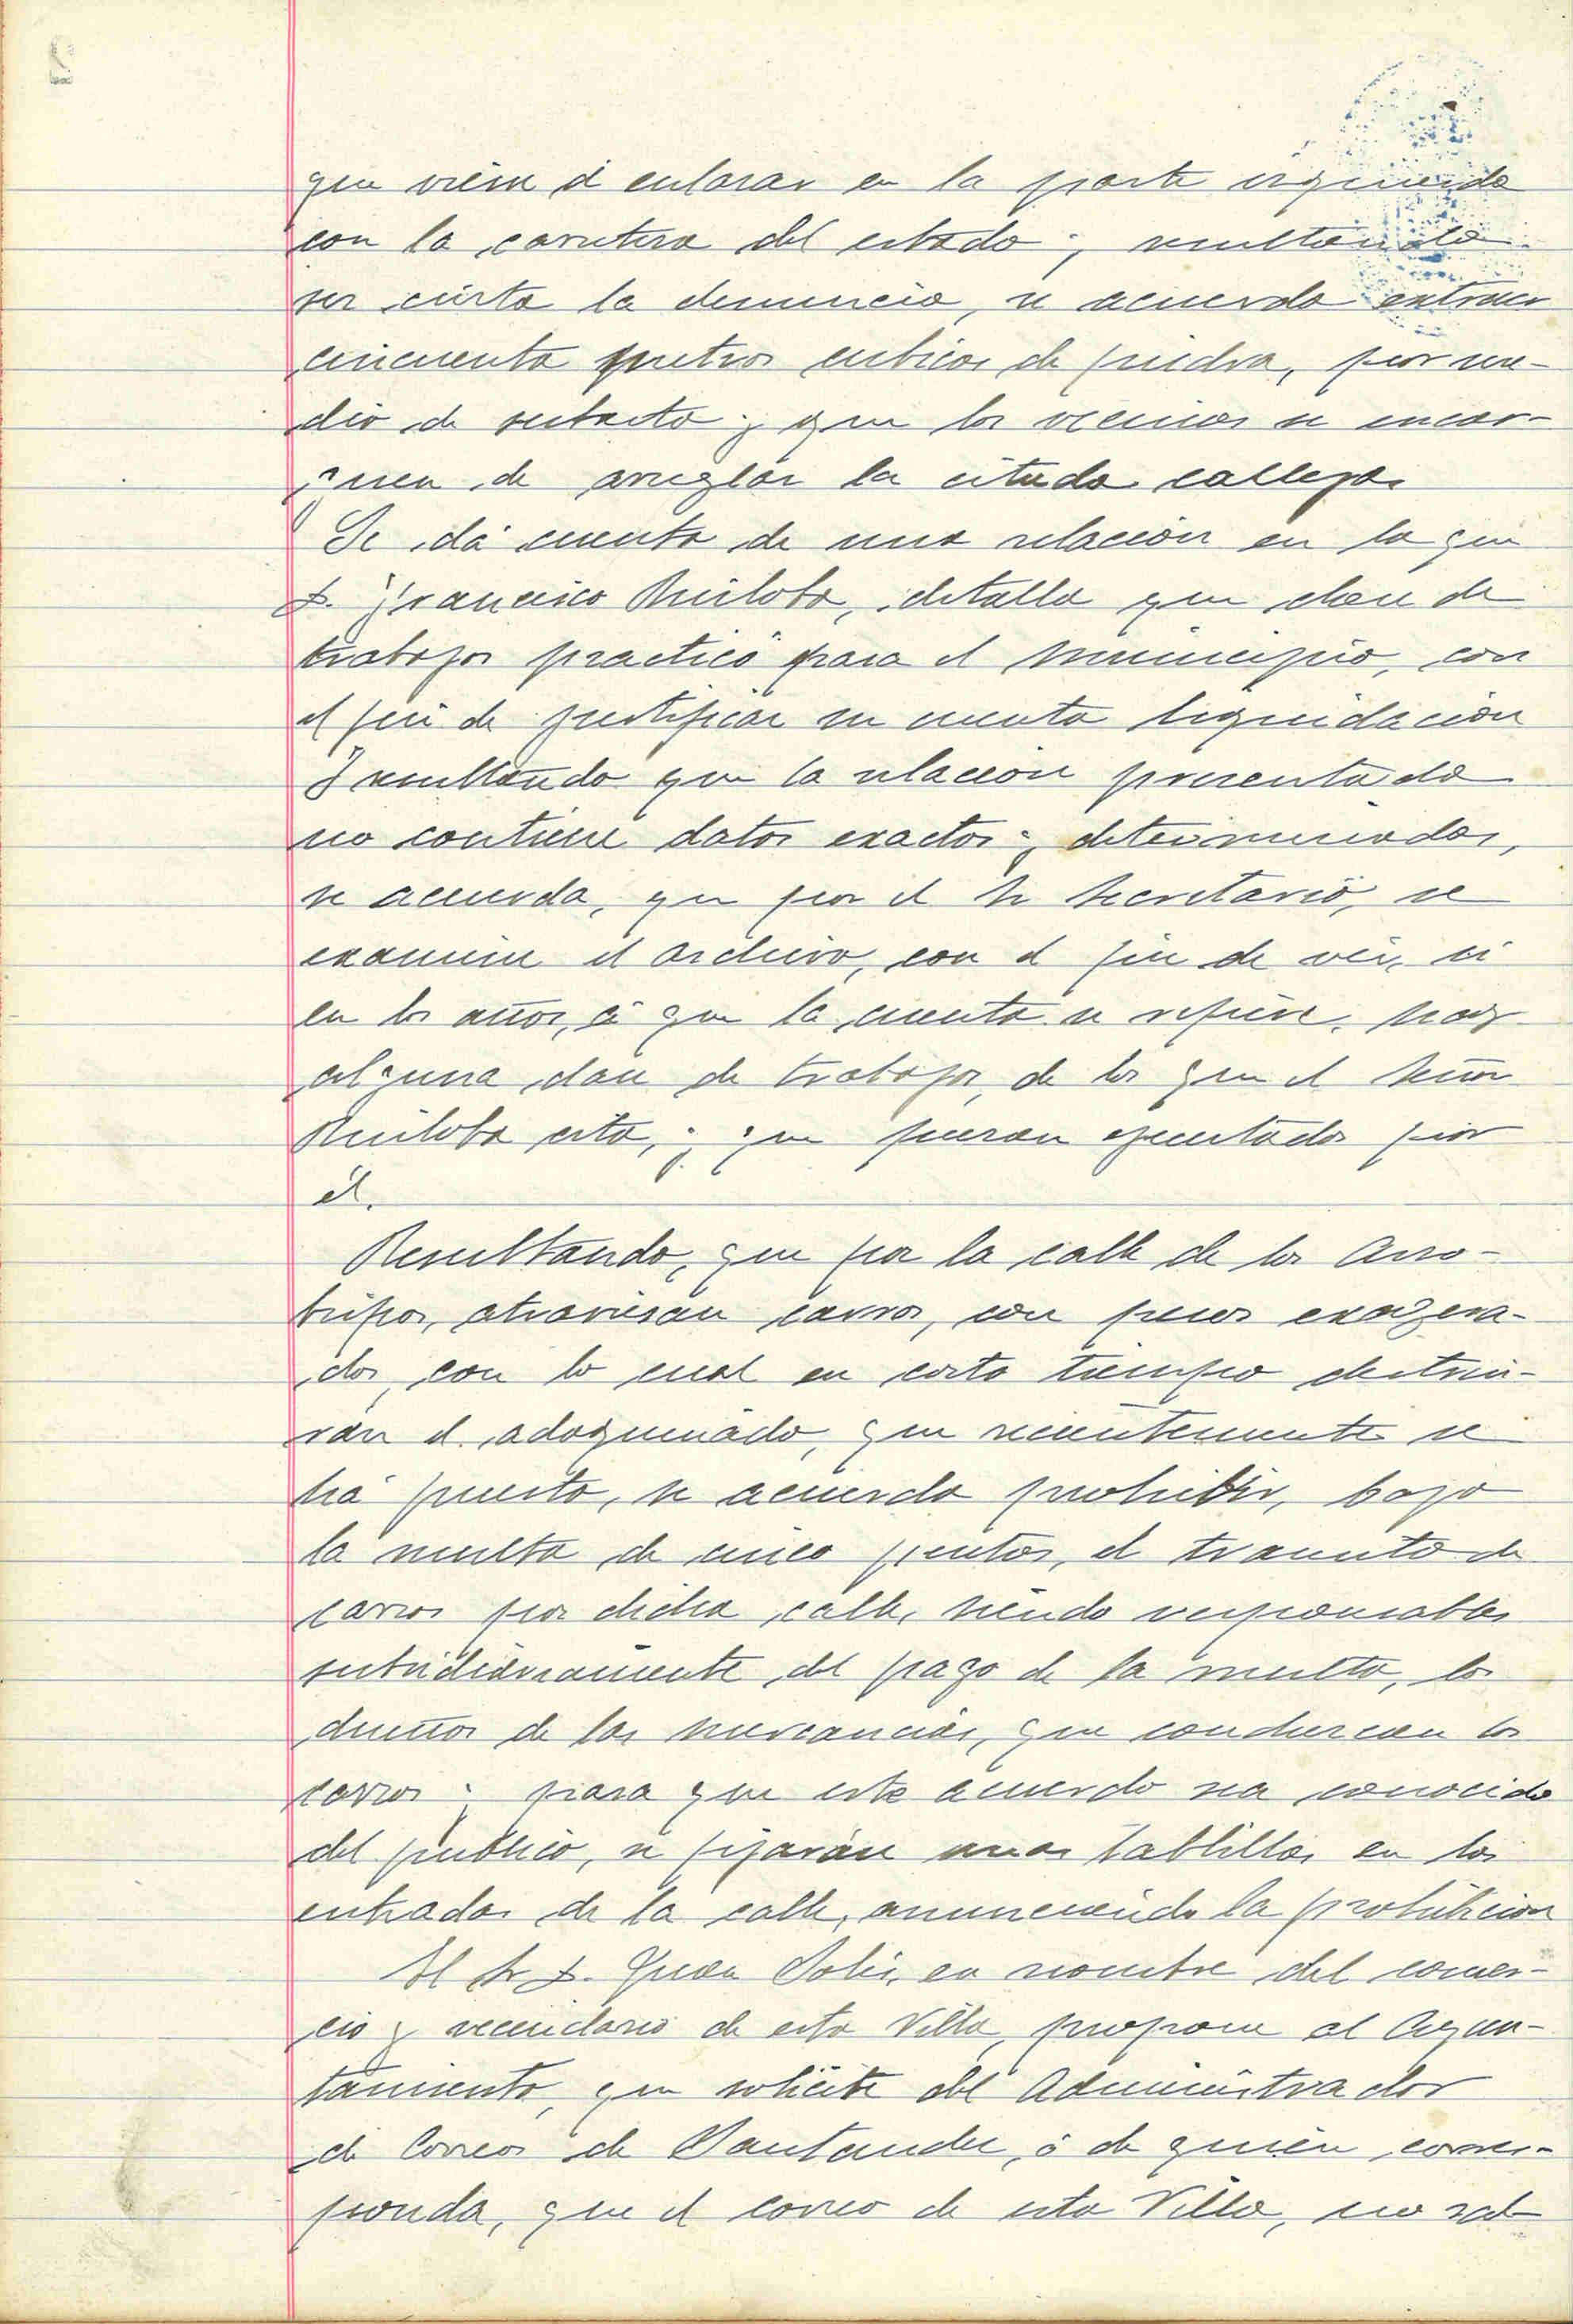 que viene á enlazar en la parte izquierda
con la carretera del estado y resultando
ser cierta la denuncia, se acuerda extraer
cincuenta metros cubicos de piedra, por me-
dio de subasta y que los vecinos se encar-
guen de arreglar la citada calleja.
Se dá cuenta de una relación en la que
D. Francisco Ruiloba, detalla que clase de
trabajos practicó para el municipio, con
el fin de justificar su cuenta liquidación
Y resultando que la relación presentada
no contiene datos exactos y determinados,
se acuerda, que por el Sr Secretario, se
examine el archivo, con el fin de ver, si
en los años, á que la cuenta se refiere, hay
alguna clase de trabajos, de los que el Señor
Ruiloba cita, y que fueran ejecutados por
él.
Resultando, que por la calle de los Azo-
gues, atraviesan carros, con pesos exagera-
dos, con lo cual en corto tiempo destrui-
rán el adoquinado, que recientemente se
há puesto, se acuerda prohibir, bajo
la multa de cinco pesetas, el transito de
carros por dicha calle, siendo responsables
subsidiariamente del pago de la multa, los
dueños de las mercancias, que conduzcan los
carros y para que este acuerdo sea conocido
del publico, se fijarán unas tablillas en las
entradas de la calle, anunciando la prohibicion
El Sr D. Juan Solis, en nombre del comer-
cio y vecindario de esta Villa, propone al Ayun-
tamiento, que solicite del Administrador
de Correos de Santander, ó de quien corres-
ponda, que el correo de esta Villa, no sal